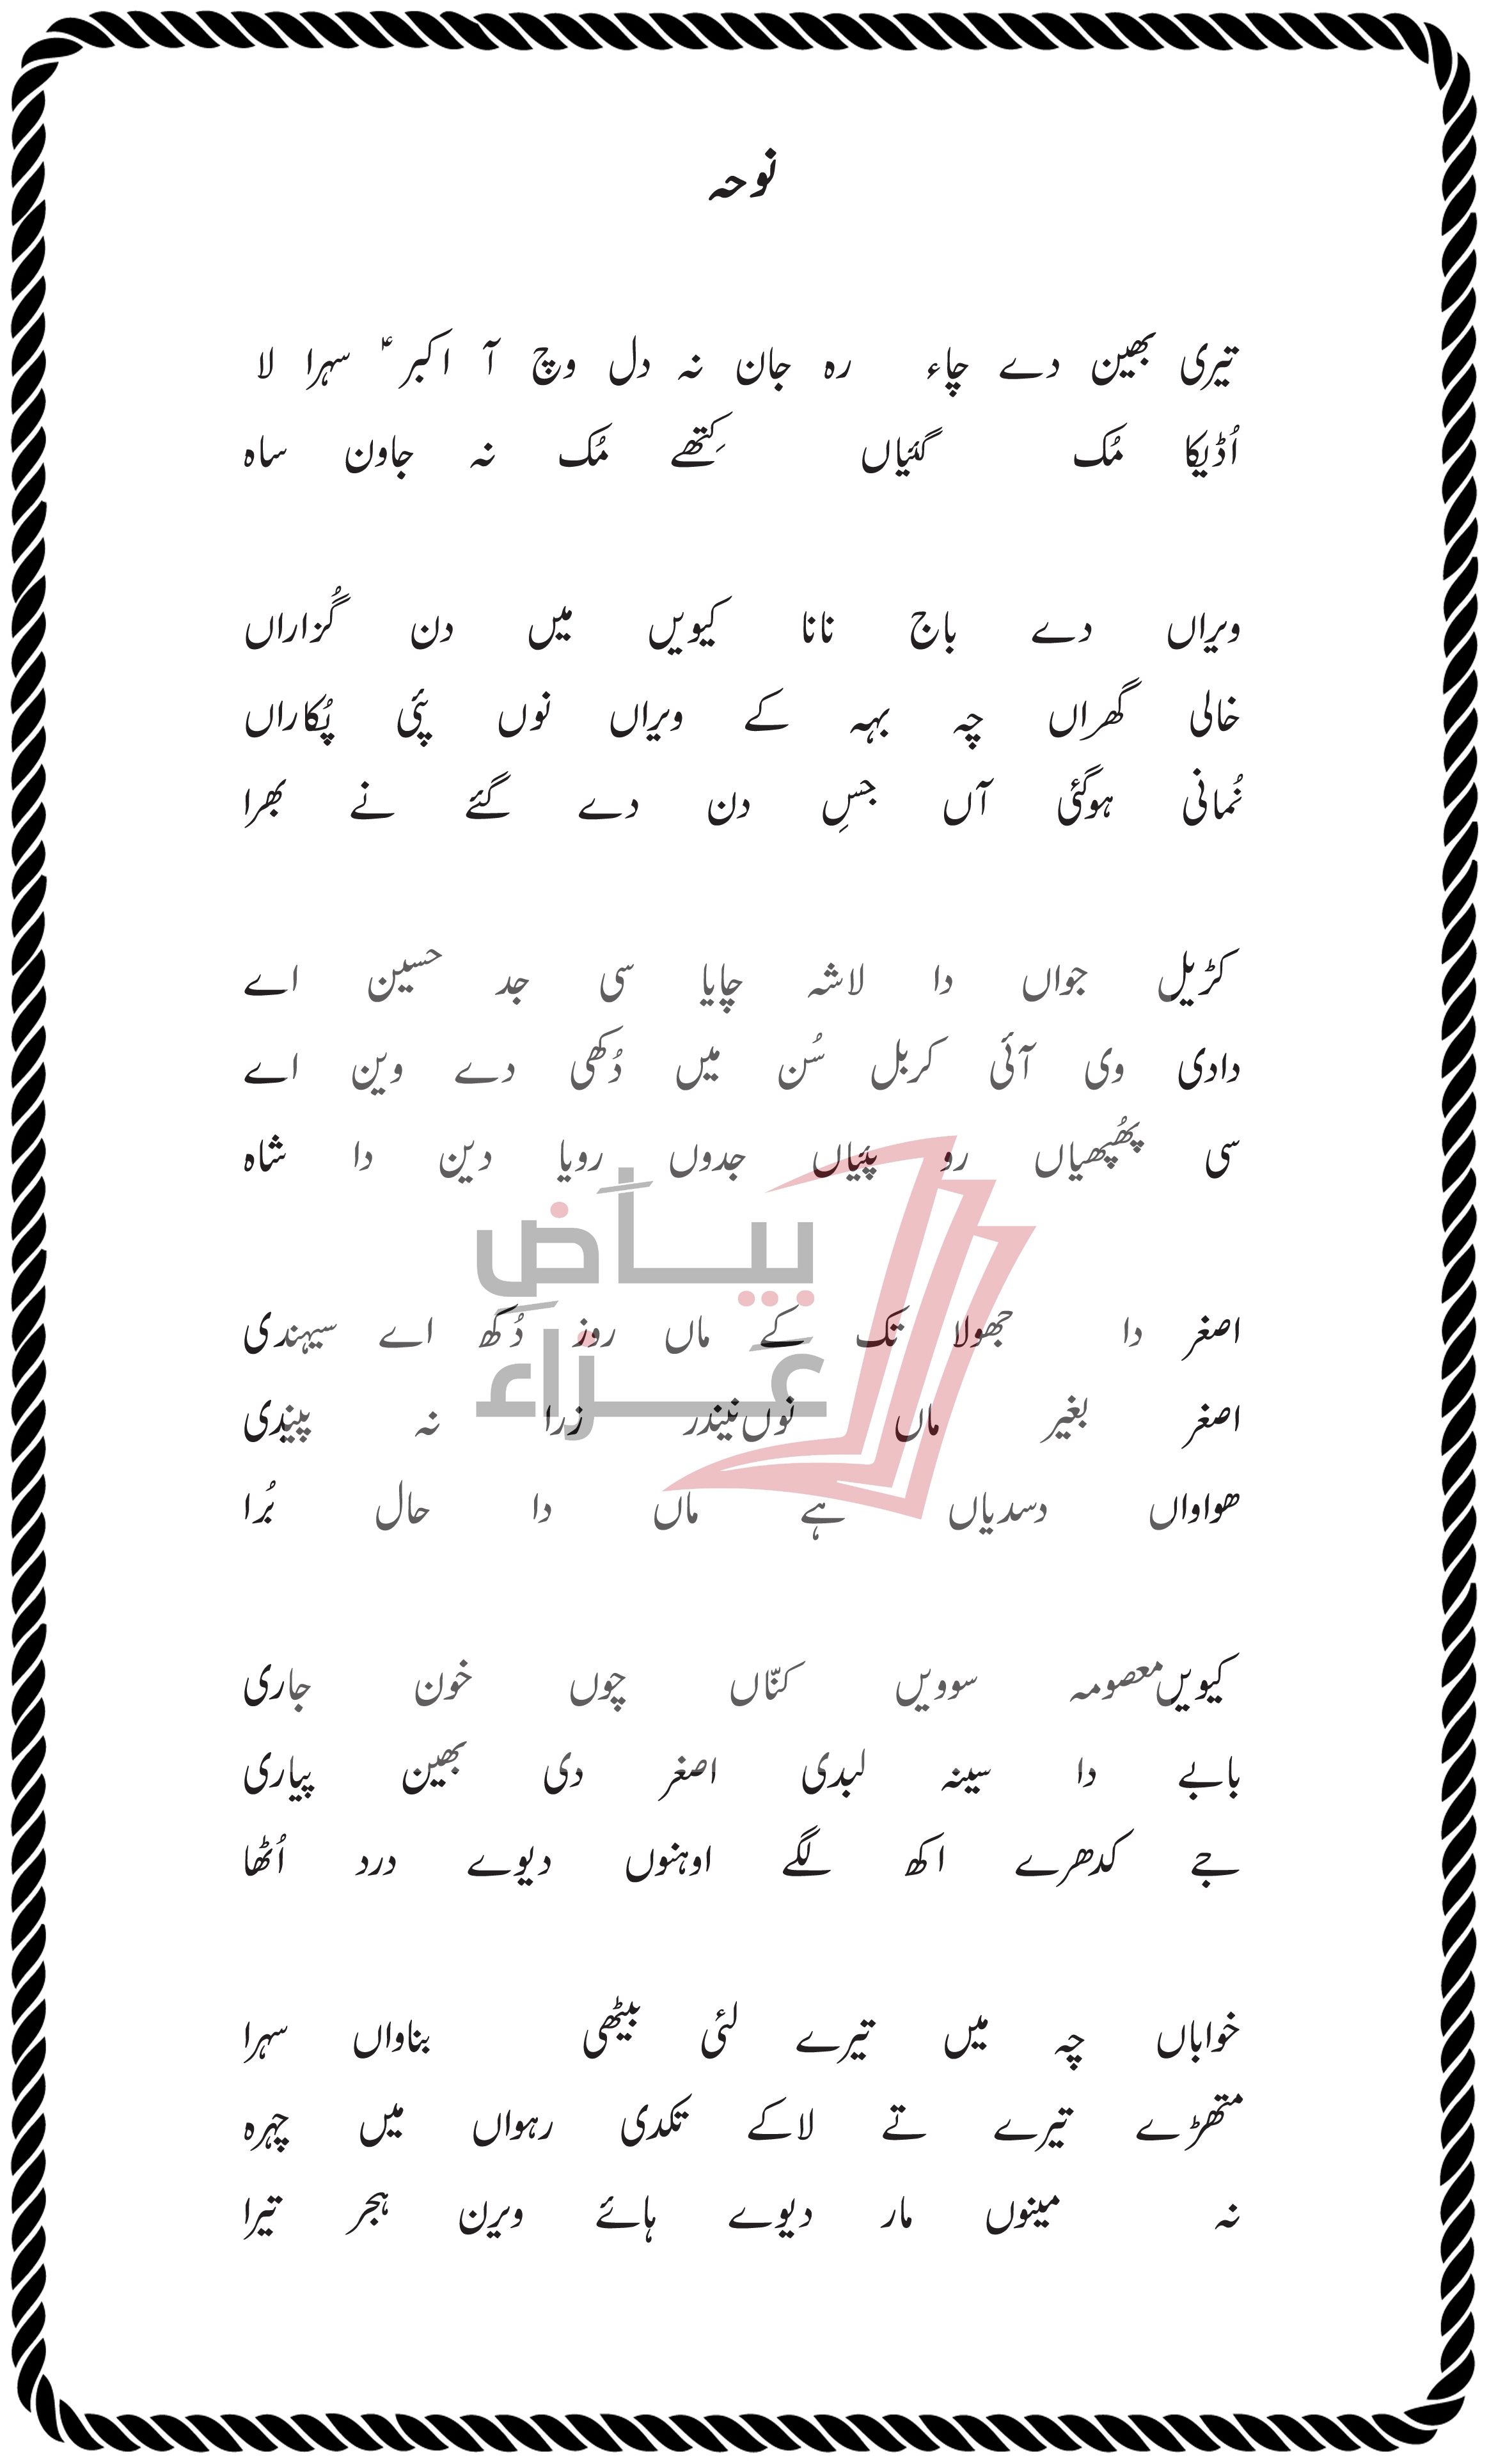 نوحہ
تیری بھین دے چاء رہ جان نہ دل وچ آ اکبرؑ سہرا لا
اُڈیکا مُک گئیاں کِتھے مُک نہ جاون ساہ
ویراں دے باج نانا کیویں میں دن گُزاراں
خالی گھراں چہ بہہ کے ویراں نوں پئی پُکاراں
نُمانی ہوگئی آں جسِ دن دے گئے نے بھرا
کڑیل جواں دا لاشہ چایا سی جد حسین اے
دادی وی آئی کربل سُن میں دُکھی دے وین اے
سی پھُپھیاں رو پئیاں جدوں رویا دین دا شاہ
بیاض
عزاء
اصغر دا جھولا تک کے ماں روز دُکھ اے سیہندی
اصغر بغیر ماں نوں نیندر زرا نہ پیندی
ھواواں دسدیاں ہے ماں دا حال بُرا
کیویں معصومہ سوویں کنّاں چوں خون جاری
بابے دا سینہ لبدی اصغر دی بھین پیاری
جے کدھرے اکھ لگے اوہنوں دیوے درد اُٹھا
خواباں چہ میں تیرے لئی بیٹھی بناواں سہرا
متھڑے تیرے تے لاکے تکدی رہواں میں چہرہ
نہ مینوں مار دیوے ہائے ویرن ہجر تیرا